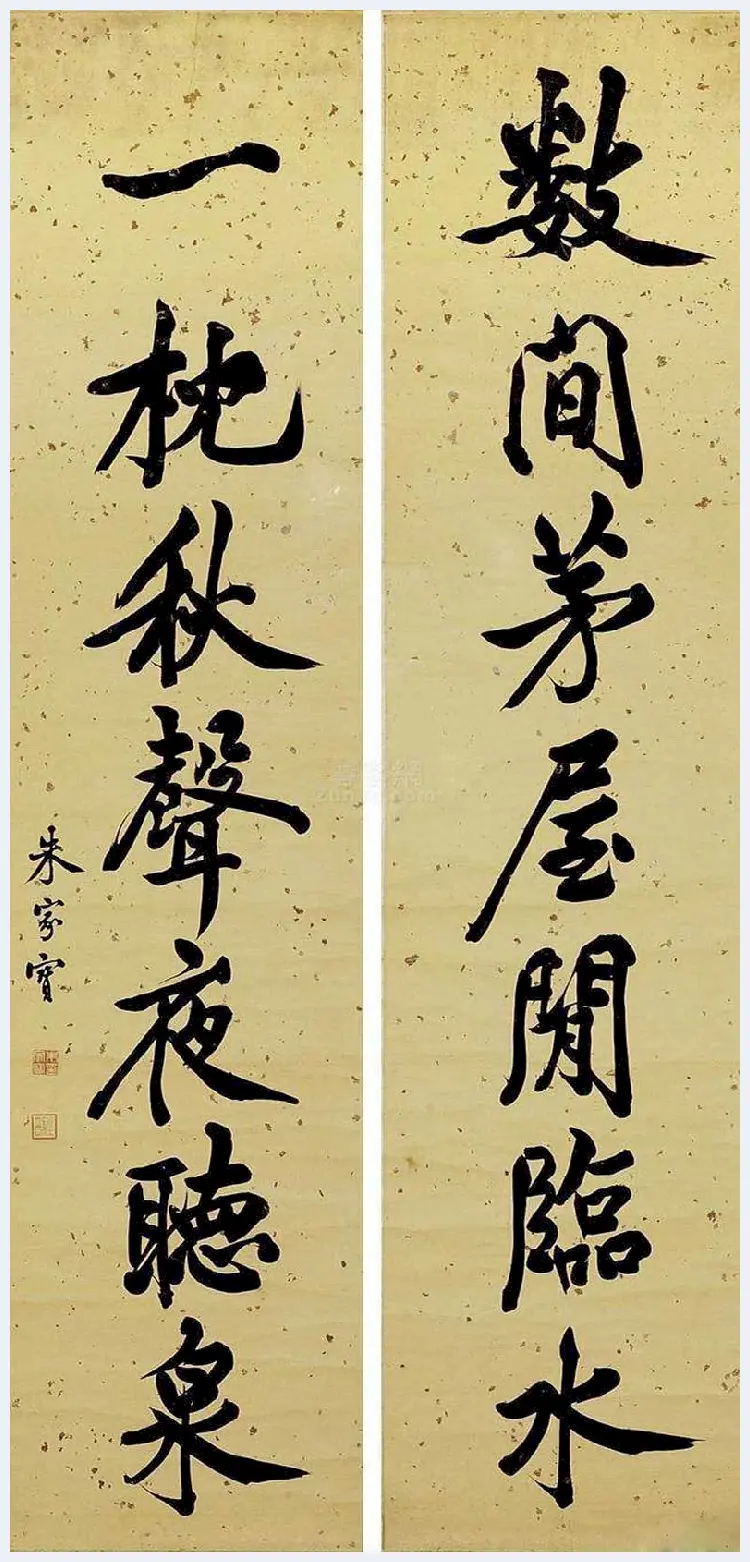 数間茅屋閒臨水
一枕秋聲夜聽泉
朱家寶